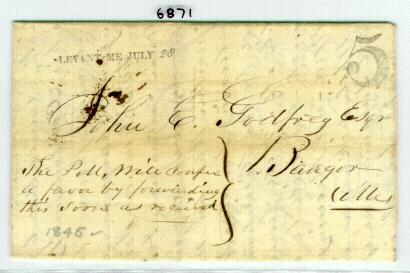 6871
LEVANT ME JULY 28
5
John E. Godfrey Esqr
Bangor
Me
The Post, Will confer
a favor by forwarding
this soon as received
1845